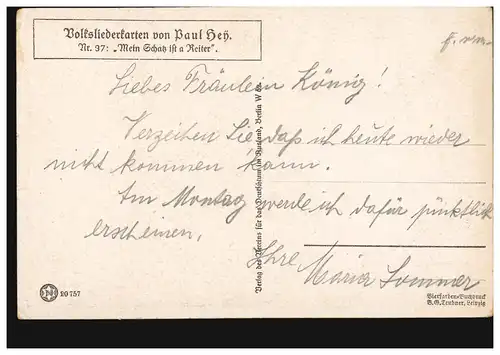 Volksliederkarten von Paul Hey.
Nr. 37: „Mein Schatz ist a Reiter“.
Liebes Fräulein König!
Verzeihen Sie, daß ich heute wieder
nicht kommen kann.
Am Montag werde ich dafür pünktlich
erscheinen.
Ihre Maria Sommer
Verlag des Vereins für das Deutschtum im Ausland, Berlin W
20757
Vierfarben-Buchdruck
B.G. Teubner, Leipzig